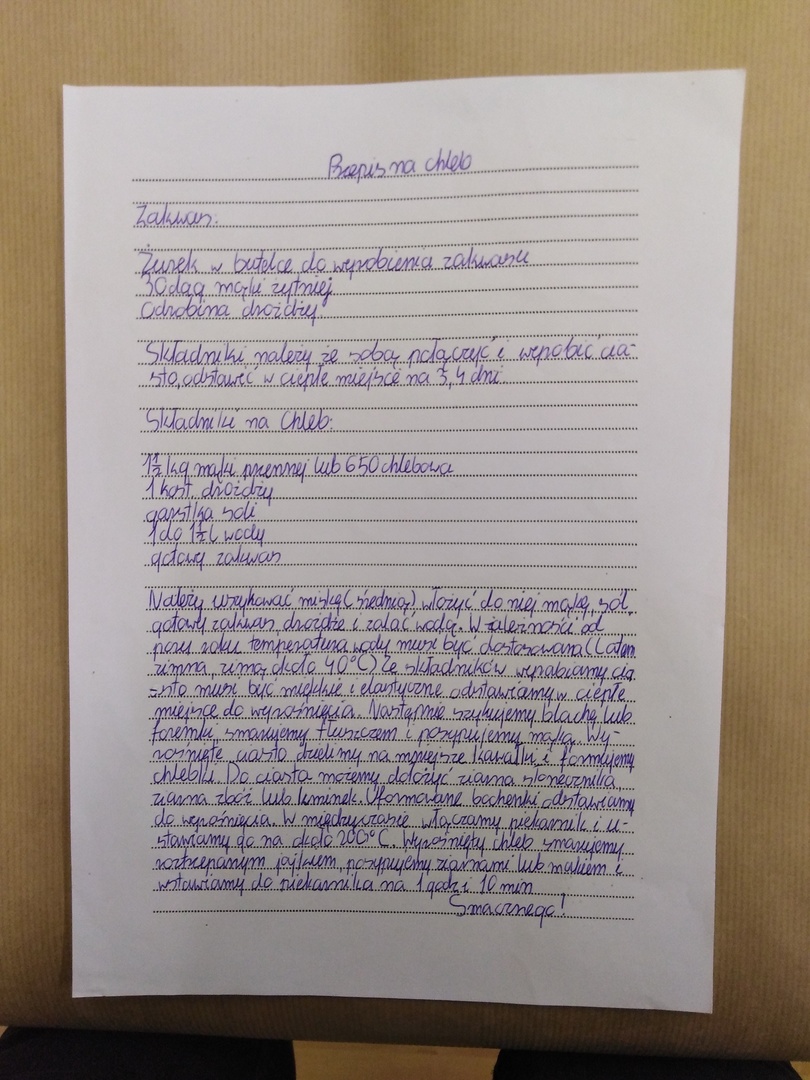 Przepis na chleb
Zakwas:
Żurek w butelce do wyrobienia zakwasu
30 dag mąki żytniej
odrobina drożdży
Składniki należy ze sobą połączyć i wyrobić cia-
sto, odstawić w ciepłe miejsce na 3, 4 dni.
Składniki na Chleb:
1 1/2 kg mąki pszennej lub 650 chlebowa
1 kost. drożdży
garstka soli
1 do 1 1/2 l wody
gotowy zakwas
Należy uszykować miskę (średnią) włożyć do niej mąkę, sól,
gotowy zakwas, drożdże i zalać wodą. W zależności od
pory roku temperatura wody musi być dostosowana (Latem
zimna, zimą około 40°C) Ze składników wyrabiamy cia
-sto musi być miękkie i elastyczne odstawiamy w ciepłe
miejsce do wyrośnięcia. Następnie szykujemy blachę lub
foremki, smarujemy tłuszczem i posypujemy mąką. Wy-
rośnięte ciasto dzielimy na mniejsze kawałki i formujemy
chlebki. Do ciasta możemy dołożyć ziarna słonecznika,
ziarna zbóż lub kminek. Uformowane bochenki odstawiamy
do wyrośnięcia. W międzyczasie włączamy piekarnik i u-
stawiamy go na około 200°C. Wyrośnięty chleb smarujemy
roztrzepanym jajkiem, posypujemy ziarnami lub makiem i
wstawiamy do piekarnika na 1 godz i 10 min
Smacznego!